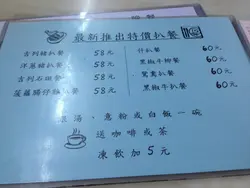 最新推出特價扒餐
吉列豬扒餐 58元
洋蔥豬扒餐 58元
吉列石班餐 58元
菠蘿腸仔雞扒餐 58元
仔扒餐 60元
黑椒牛柳餐 60元
鴛鴦扒餐 60元
黑椒牛扒餐 60元
跟湯、意粉或白飯一碗
送咖啡或茶
凍飲加5元